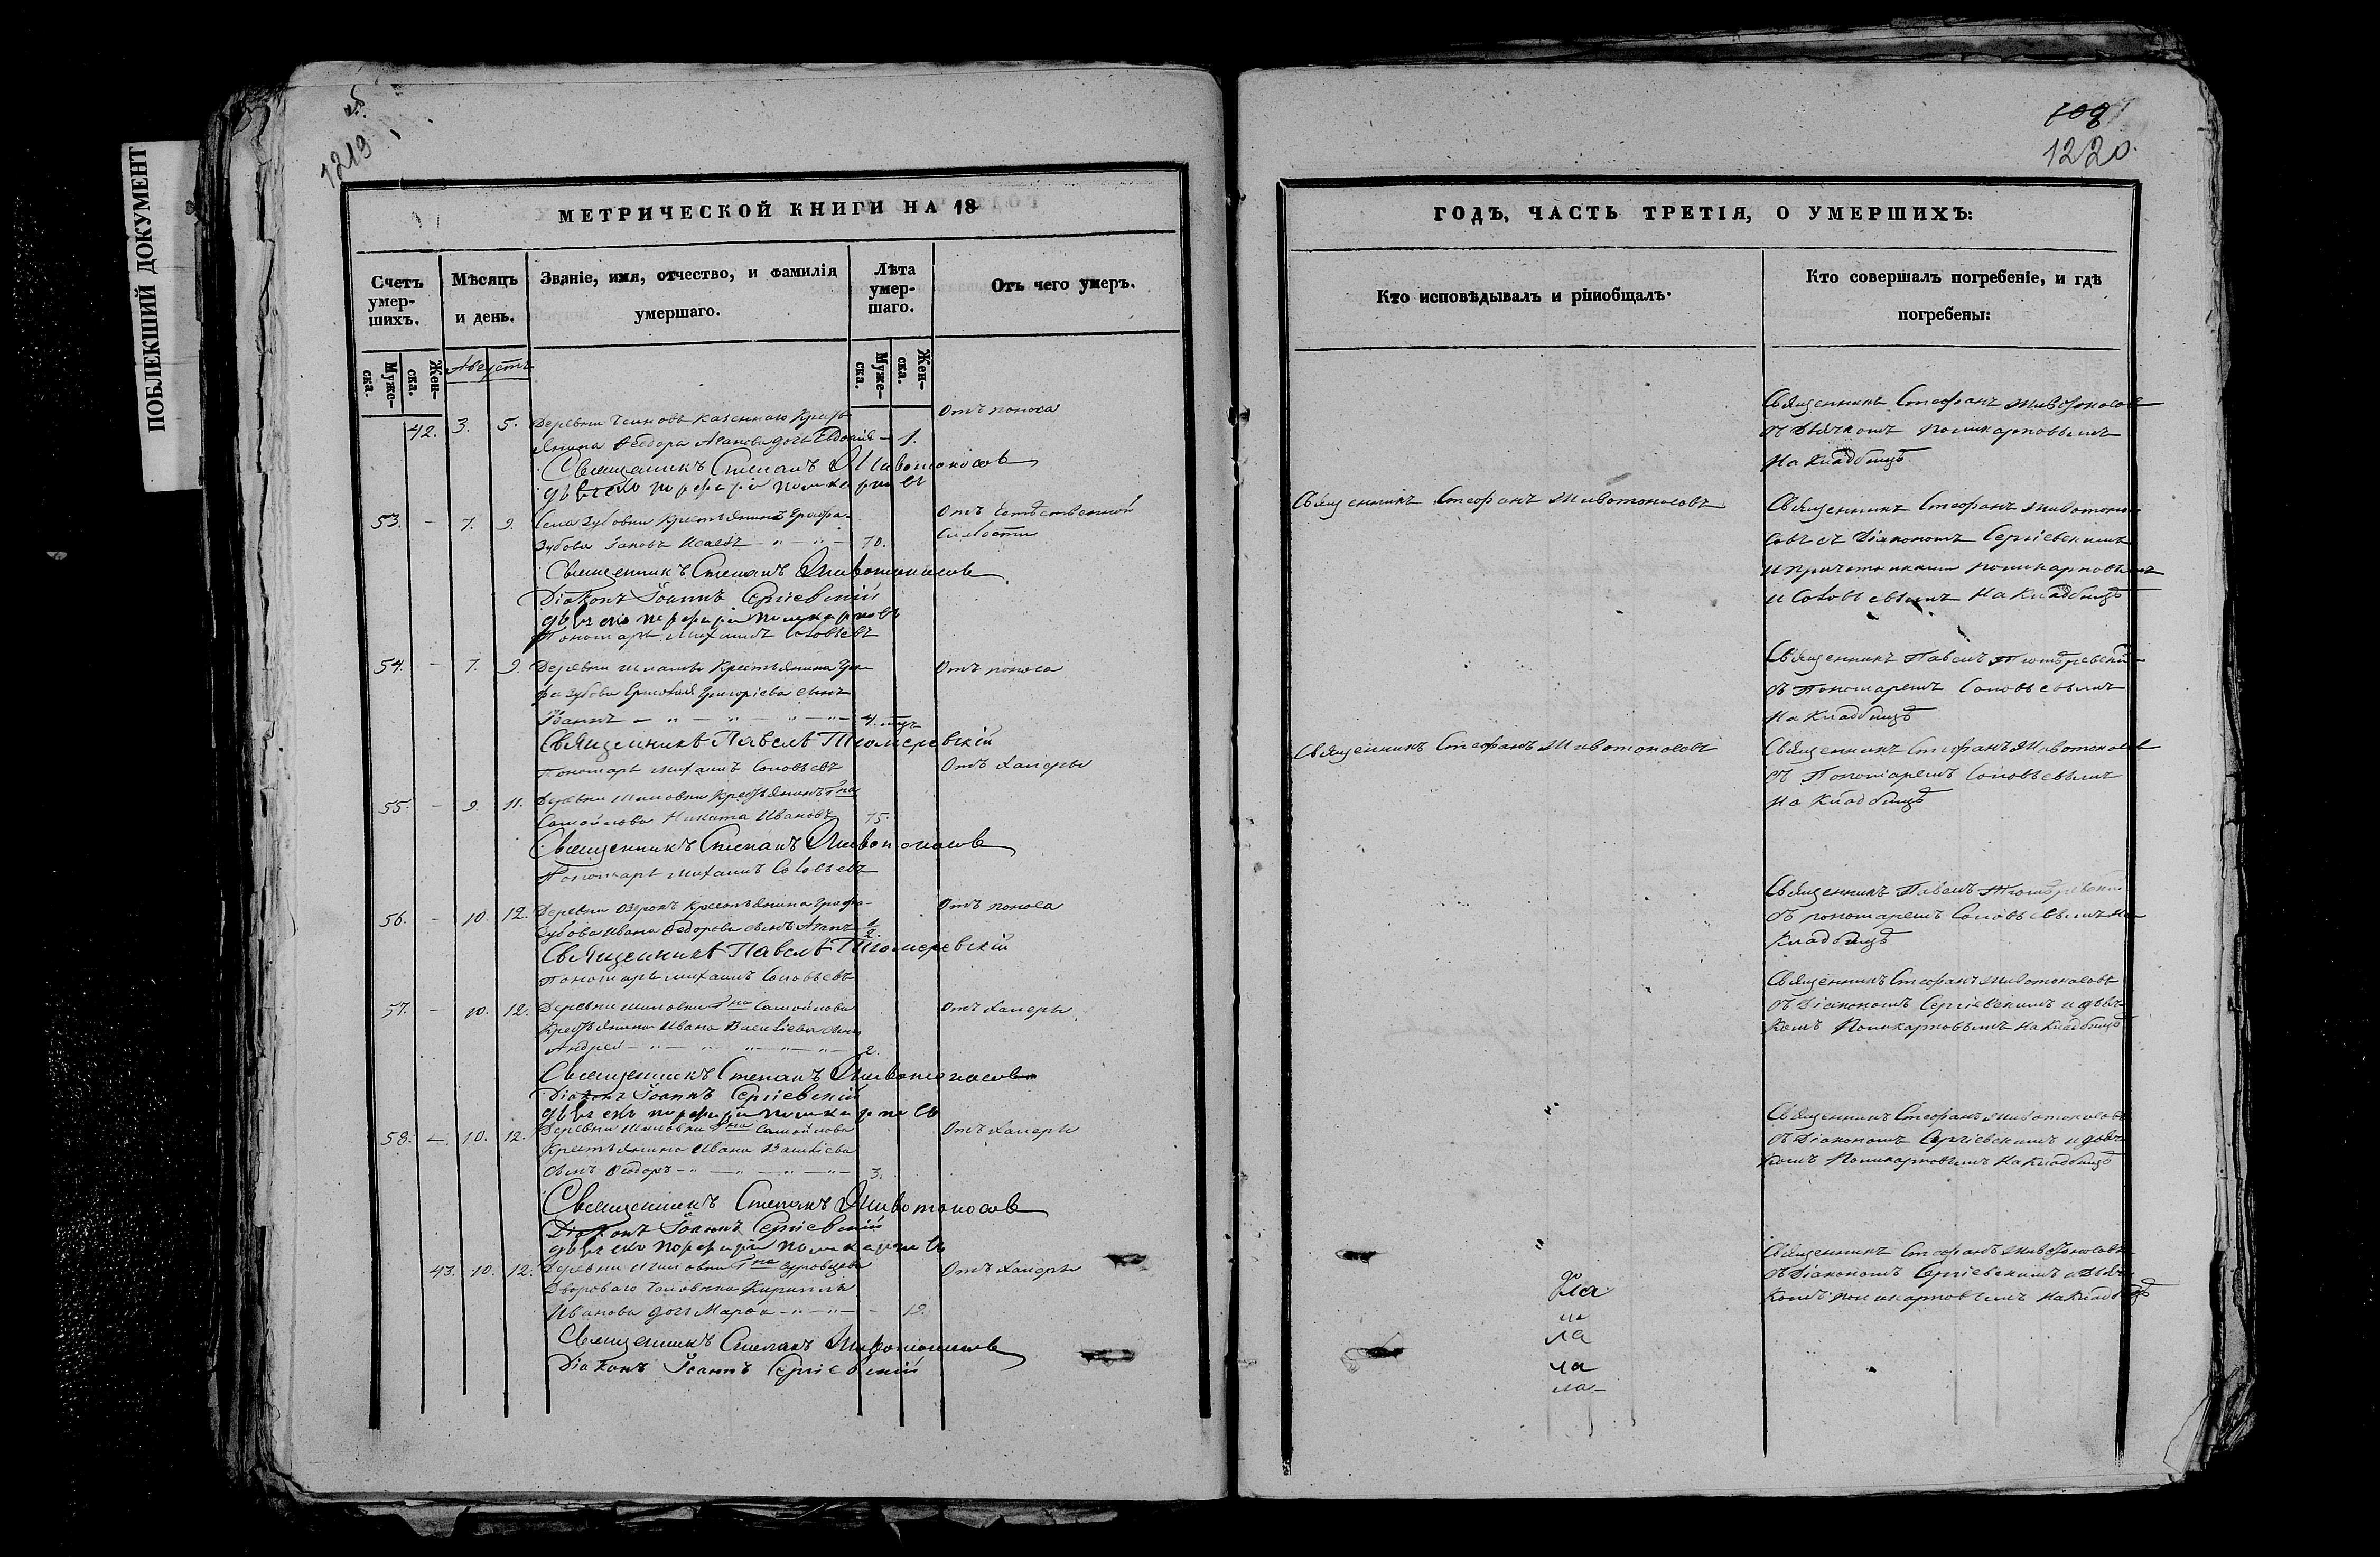 ПОБЛЕКШИЙ ДОКУМЕНТ
об.
1219
МЕТРИЧЕСКОЙ КНИГИ НА 18
Счетъ умер-
шихъ.
Мѣсяцъ
и день.
Званіе, имя, отчество, и фамилія
умершаго.
Лѣта
умер-
шаго.
Отъ чего умеръ.
Муже-
ска.
Жен-
ска.
Августъ
Муже-
ска.
Жен-
ска.
42. 3. 5. Деревни казеннаго Кресть
янина Ѳеодора Агапова дочь Евдокія - 1. Отъ поноса
Священникъ Стефанъ Животоносовъ
дьячекъ порфирій поликарповъ
53. - 7. 9. Села Зубовки Крестьянинъ Графа
Зубова Іаковъ Исаевъ - " - " - 70. Отъ Естественной
слабости
Священникъ Стефанъ Животоносовъ
Діаконъ Іоаннъ Сергіевскій
дьячекъ порфирій поликарповъ
Пономарь Михаилъ Соловьевъ
54. - 7. 9. Деревни Крестьянина Гра-
фа Зубова Григоріева сынъ
Іоаннъ - " - " - " - " - 4. мѣц. Отъ поноса
Священникъ Павелъ Тиомеревскій
Пономарь Михаилъ Соловьевъ
55. - 9. 11. Деревни Шиловки Крестьянинъ Гна
Самойлова Никита Ивановъ 75. Отъ Халеры
Священникъ Степанъ Животоносовъ
Пономарь Михаилъ Соловьевъ
56. - 10. 12. Деревни Озерокъ Крестьянина Графа
Зубова Ивана Ѳедорова сынъ Агапъ 1/2. Отъ поноса
Священникъ Павелъ Тиомеревскій
Пономарь Михаилъ Соловьевъ
57. - 10. 12. Деревни Шиловки Гна Самойлова
Крестьянина Ивана Василіева сынъ
Андрей - " - " - " - " - 2. Отъ Халеры
Священникъ Степанъ Животоносовъ
Діаконъ Іоаннъ Сергіевскій
дьячекъ порфирій поликарповъ
58. - 10. 12. Деревни Шиловки Гна Самойлова
Крестьянина Ивана Василіева
сынъ Ѳеодоръ - " - " - " - 3. Отъ Халеры
Священникъ Степанъ Животоносовъ
Діаконъ Іоаннъ Сергіевскій
дьячекъ порфирій поликарповъ
43. 10. 12. Деревни Шиловки Гна Суровцева
Двороваго человѣка Кирилла
Иванова дочь Марѳа - " - " - - 12. Отъ Халеры
Священникъ Стефанъ Животоносовъ
Діаконъ Іоаннъ Сергіевскій
1220.
ГОДЪ, ЧАСТЬ ТРЕТІЯ, О УМЕРШИХЪ:
Кто исповѣдывалъ и ріпиобщалъ.
Кто совершалъ погребеніе, и гдѣ
погребены:
Священникъ Стефанъ Животоносовъ
съ Дьячкомъ Поликарповымъ
на Кладбищѣ
Священникъ Стефанъ Животоносовъ
Священникъ Стефанъ Животоно-
совъ съ Діакономъ Сергіевскимъ
и причетниками поликарповымъ
и Соловьевымъ на Кладбищѣ
Священникъ Павелъ Тиомеревскій
съ Пономаремъ Соловьевымъ
на Кладбищѣ
Священникъ Стефанъ Животоносовъ
Священникъ Стефанъ Животоносовъ
съ Пономаремъ Соловьевымъ
на Кладбищѣ
Священникъ Павелъ Тиомеревскій
съ пономаремъ Соловьевымъ на
Кладбищѣ
Священникъ Стефанъ Животоносовъ
съ Діакономъ Сергіевскимъ и дьяч-
комъ Поликарповымъ на Кладбищѣ
Священникъ Стефанъ Животоносовъ
съ Діакономъ Сергіевскимъ и дьяч-
комъ Поликарповымъ на Кладбищѣ
Священникъ Стефанъ Животоносовъ
съ Діакономъ Сергіевскимъ и Дьяч-
комъ поликарповымъ на Кладбищѣ